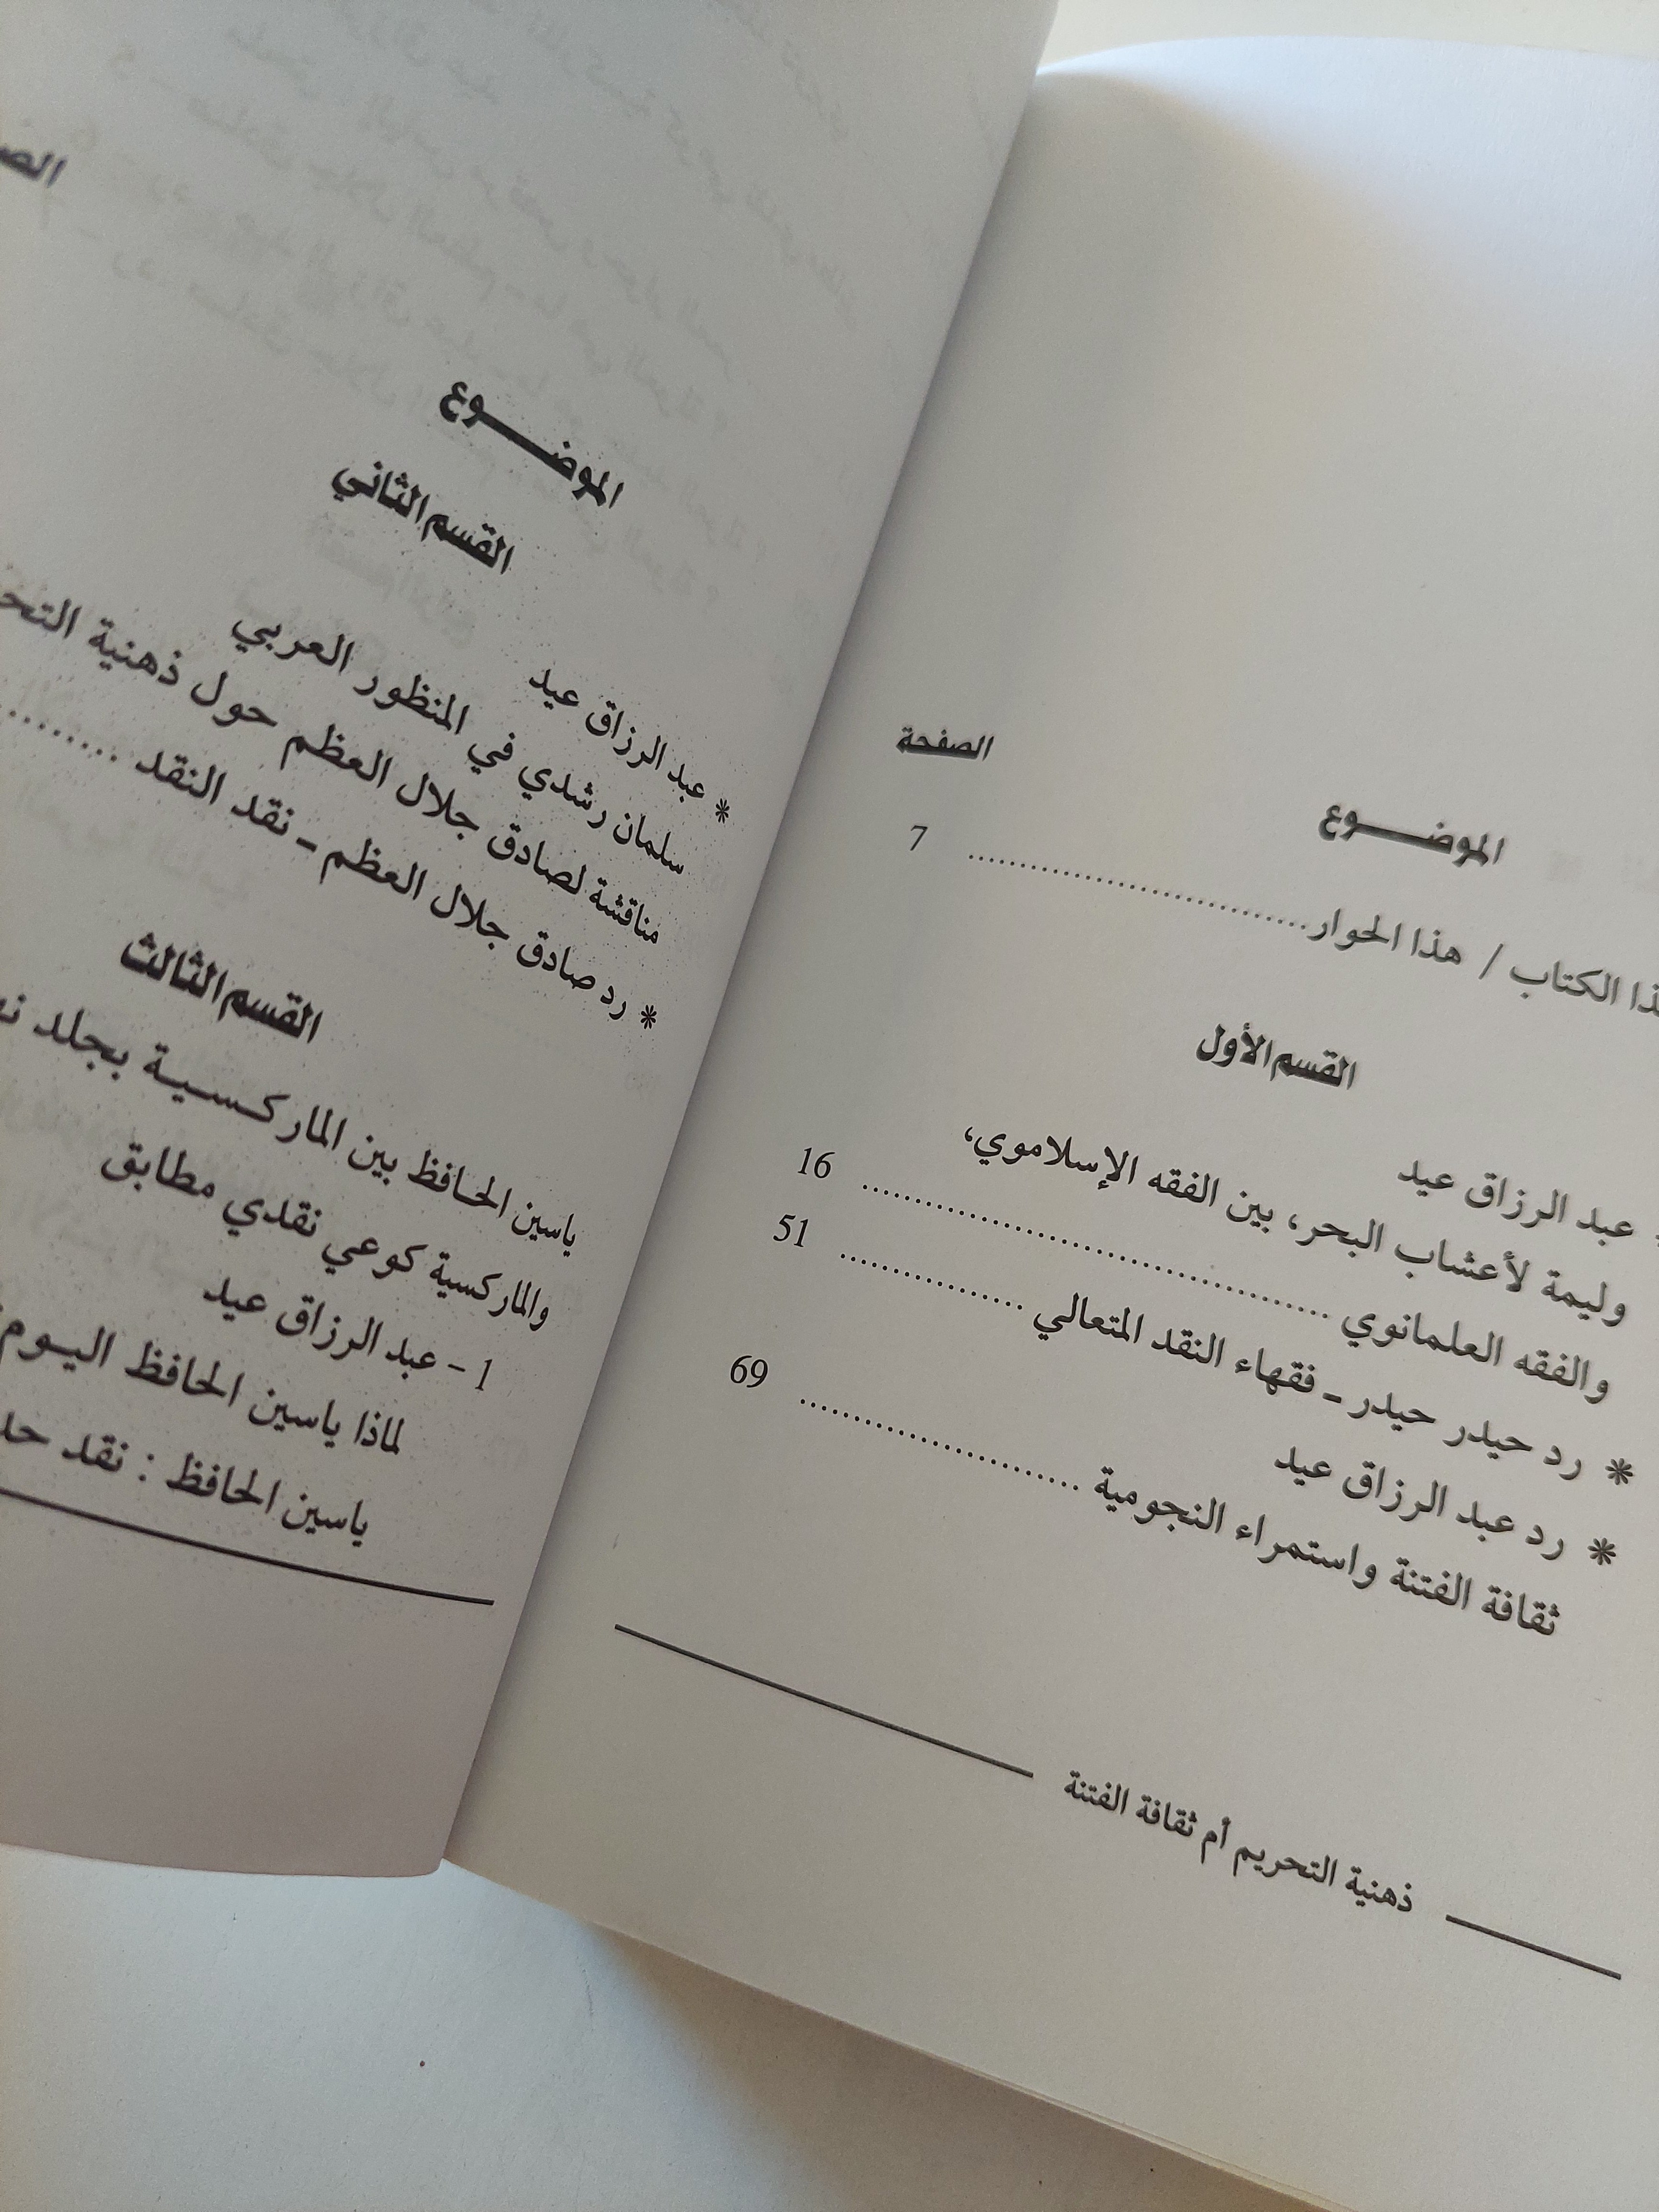 الموضـــوع الصفحة
الكتاب / هذا الحوار .............................. 7
القسم الأول
عبد الرزاق عيد
وليمة لأعشاب البحر، بين الفقه الإسلاموي،
والفقه العلمانوي .............................. 16
* رد حيدر حيدر ـ فقهاء النقد المتعالي ............... 51
* رد عبد الرزاق عيد
ثقافة الفتنة واستمراء النجومية ...................... 69
ذهنية التحريم أم ثقافة الفتنة
الموضـــوع
القسم الثاني
* عبد الرزاق عيد
سلمان رشدي في المنظور العربي
مناقشة لصادق جلال العظم حول ذهنية
* رد صادق جلال العظم ـ نقد النقد ..........
القسم الثالث
ياسين الحافظ بين الماركسية بجلد
والماركسية كوعي نقدي مطابق
1 - عبد الرزاق عيد
لماذا ياسين الحافظ اليوم
ياسين الحافظ : نقد